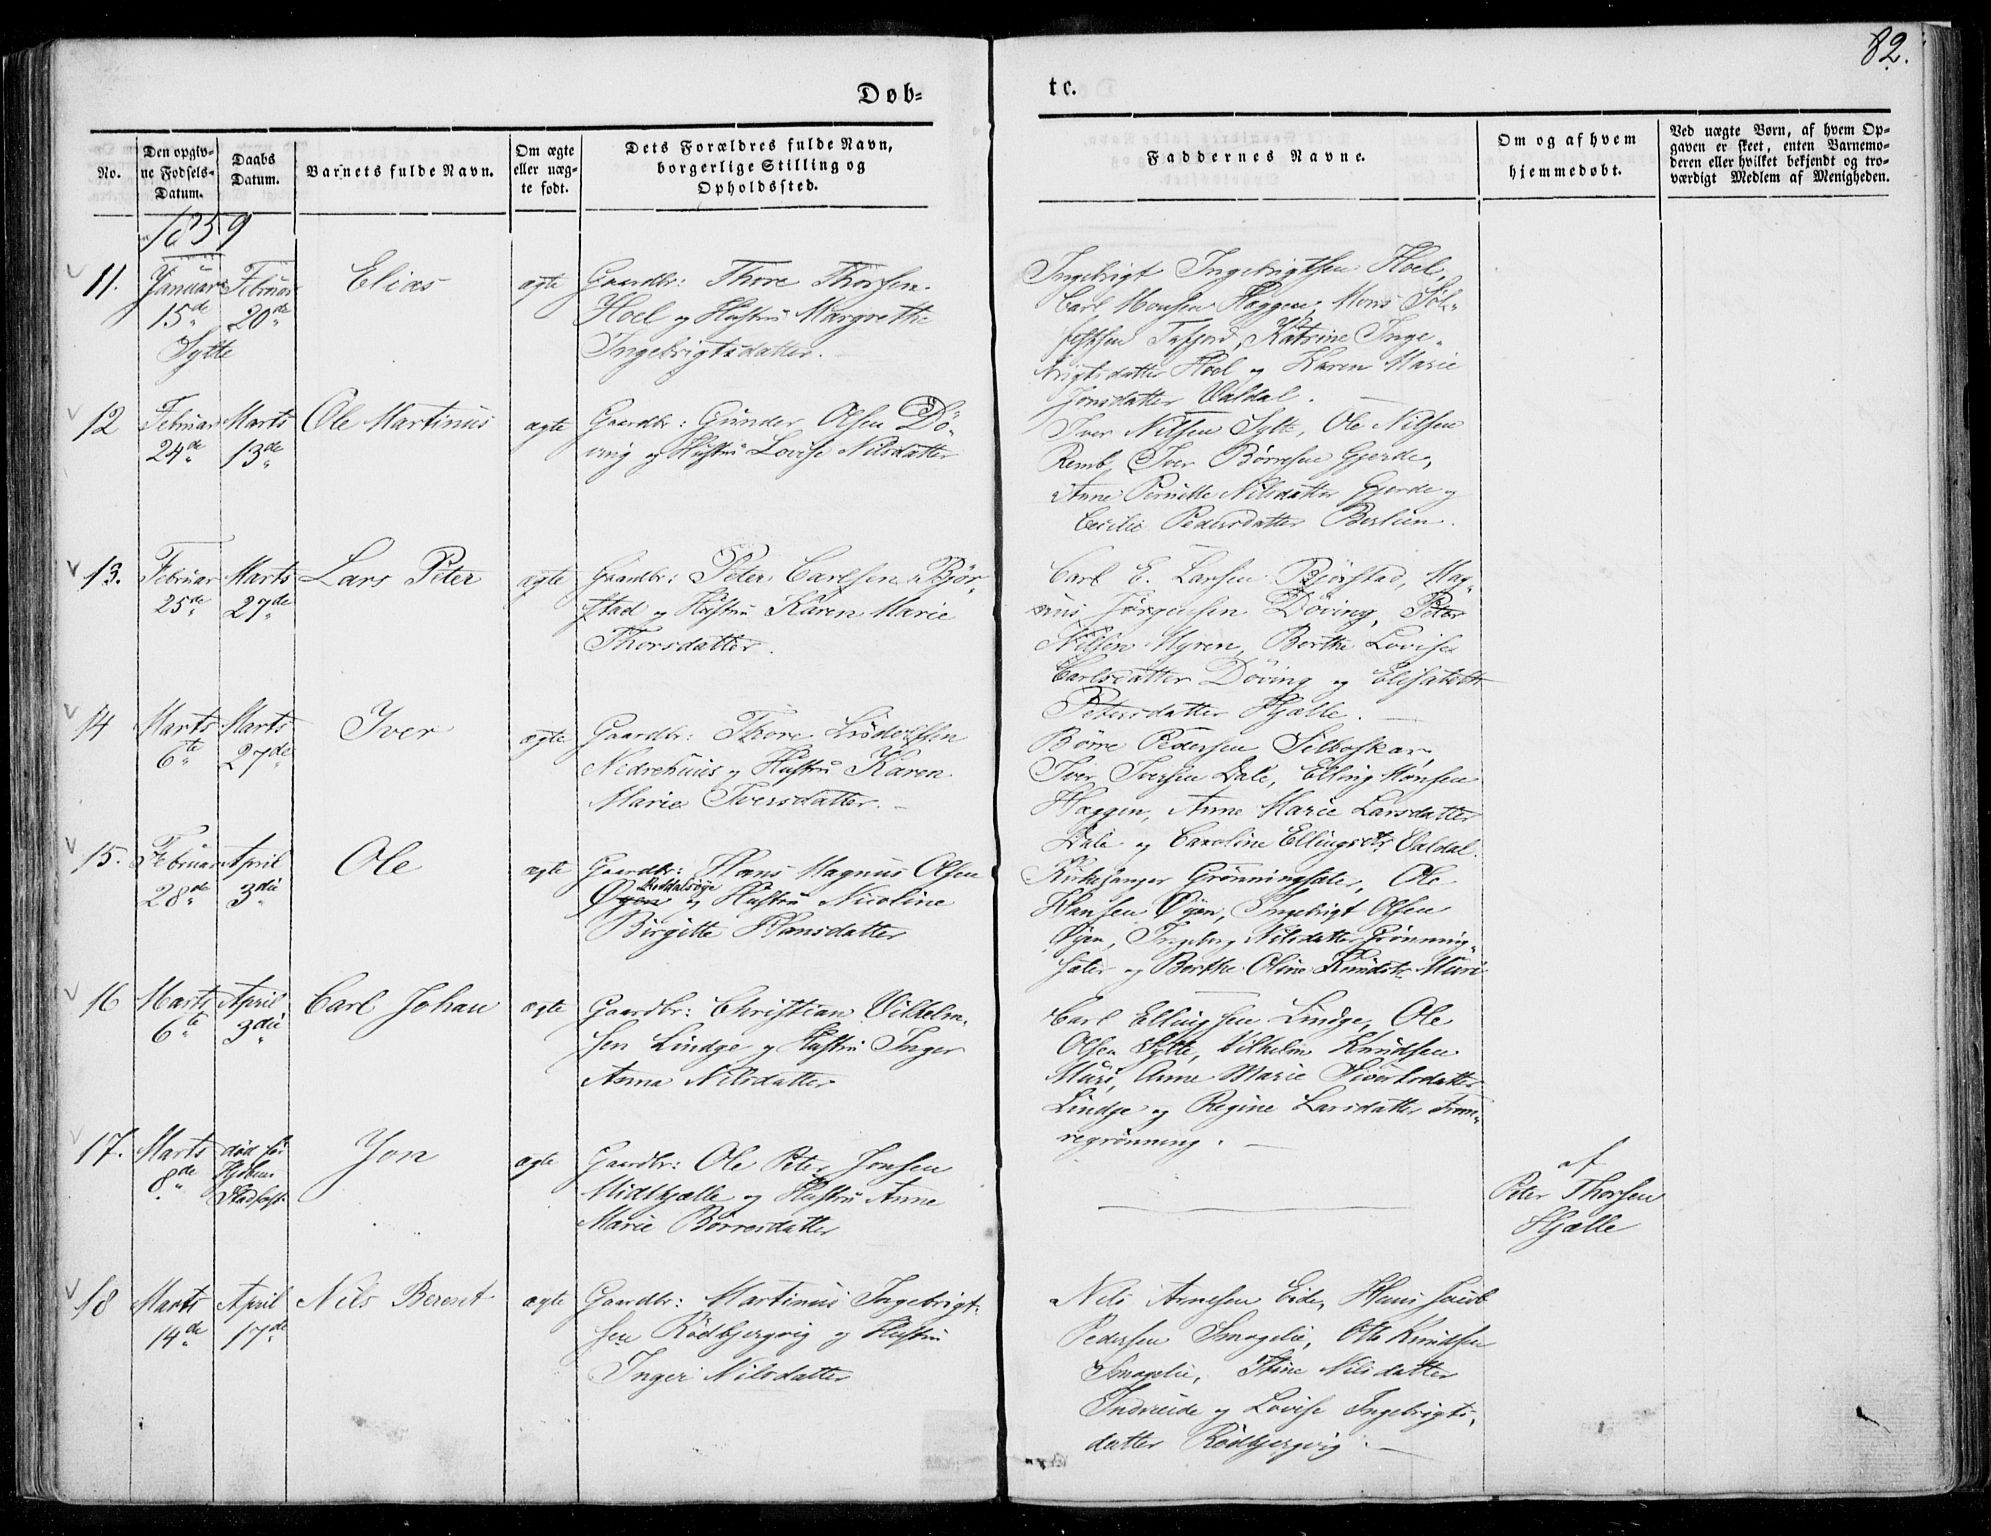 82.
Døb=
te.
No.
Den opgiv-
ne Fødsels-
Datum.
Daabs
Datum.
Barnets fulde Navn.
Om ægte
eller uæg-
te født.
Dets Forældres fulde Navn,
borgerlige Stilling og
Opholdssted.
Faddernes Navne.
Om og af hvem
hjemmedøbt.
Ved uægte Børn, af hvem Op-
gaven er skeet, enten Barnemo-
deren eller hvilket bekjendt og tro-
værdigt Medlem af Menigheden.
1859
11.
Januar
15de
Sylte
Februar
20de
Elias
ægte
Gaardbr: Thore Thorsen
Hoel og Hustru Margrethe
Ingebrigtsdatter.
Ingebrigt Ingebrigtsen Hoel,
Carl Monsen Hæggen, Mons
Tafjord, Katrine Inge-
brigtsdatter Hoel og Karen Marie
Jonsdatter Valdal.
12
Februar
24de
Marts
13de
Ole Martinus
ægte
Gaardbr: Gunder Olsen Dö-
ving og Hustru Lovise Nilsdatter
Iver Nilsen Sylte, Ole Nilsen
Remb, Iver Børresen Gjerde,
Anne Pernille Nilsdatter Gjerde og
Cecilie Pedersdatter Berlien.
13.
Februar
25de
Marts
27de
Lars Peter
ægte
Gaardbr: Peter Carlsen Bjør-
stad og Hustru Karen Marie
Thorsdatter.
Carl E. Larsen Bjørstad, Mag-
nus Jørgensen Döving, Peter
Nilsen Myren, Berthe Lovise
Carlsdatter Döving og Elisabeth
Petersdatter Hjelle.
14
Marts
6te
Marts
27de
Iver
ægte
Gaardbr: Thore Ludolfsen
Nedrehuus og Hustru Karen
Marie Iversdatter.
Börre Pedersen Selboskar,
Iver Iversen Dale, Elling Monsen
Hæggen, Anne Marie Larsdatter
Dale og Caroline Ellingsdtr Valdal.
15.
Februar
28de
April
3die
Ole
ægte
Gaardbr: Hans Magnus Olsen
Øyen Liddalsöye og Hustru Nicoline
Birgitte Hansdatter
Kirkesanger Grönningsæter, Ole
Hansen Øyen, Ingebrigt Olsen
Øyen, Ingeborg Nilsdatter Grönning-
sæter og Berthe Oline Knudsdtr Muri
16
Marts
6te
April
3die
Carl Johan
ægte
Gaardbr: Christian Vilhelm-
sen Lindge og Hustru Inger
Anna Nilsdatter
Carl Ellingsen Lindge, Ole
Olsen Sylte, Vilhelm Knudsen
Muri, Anne Marie Sivertsdatter
Lindge og Regine Larsdatter Frem-
regrönning.
17.
Marts
8de
død før
Stadfæst.
Jon
ægte
Gaardbr: Ole Peter Jonsen
Midthjælle og Hustru Anne
Marie Börresdatter
af
Peter Thorsen
Hjælle
18
Marts
14de
April
17de
Nils Berent
ægte
Gaardbr: Martinus Ingebrigt-
sen Rödbjergvig og Hustru
Inger Nilsdatter
Nils Arnesen Eide, Hans Jacob
Pedersen Smogelie, Ole Knudsen
Smogelie, Stine Nilsdatter
Indreeide og Lovise Ingebrigts-
datter Rödbjergvig.